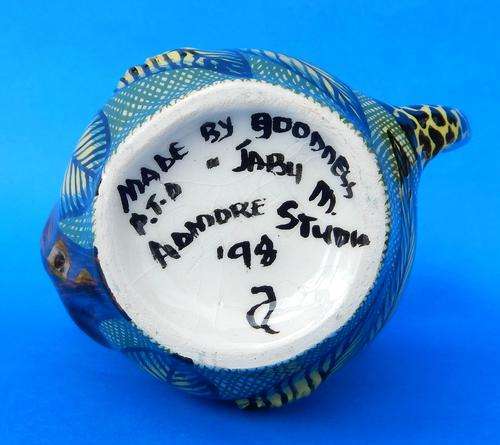 MADE BY GOODNESS
P.T-D - JABU M.
ADMORE STUDIO
'98